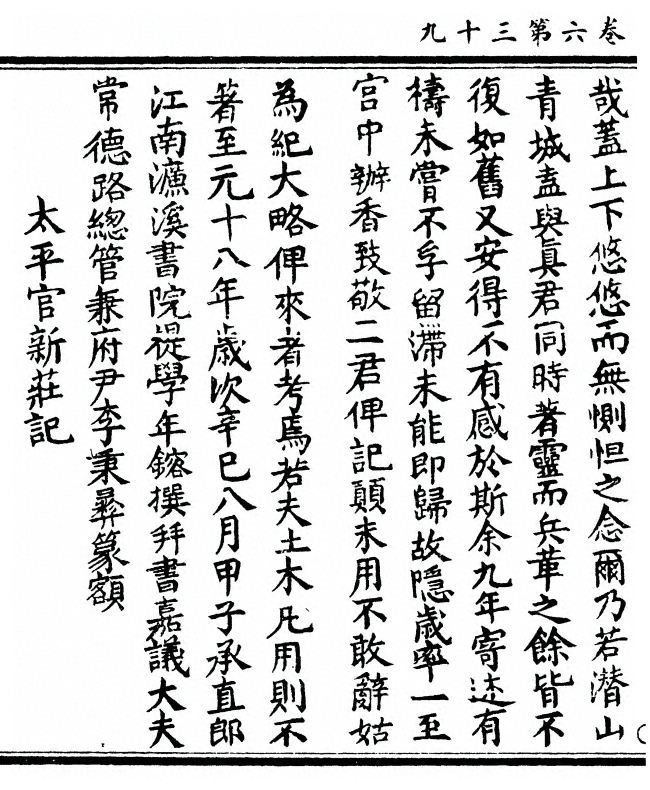 卷六第三十九
哉蓋上下悠悠而無惻怛之念爾乃若潛山
青城盍與眞君同時著靈而兵革之餘皆不
復如舊又安得不有感於斯余九年寄迹有
禱未嘗不孚留滯未能即歸故隱歲率一至
宫中辦香致敬二君俾記顛末用不敢辭姑
為紀大略俾來者考焉若夫土木凡用則不
著至元十八年歲次辛巳八月甲子承直郎
江南濂溪書院提學年鎔撰拜書嘉議大夫
常德路總管兼府尹李秉彝篆額
太平官新莊記